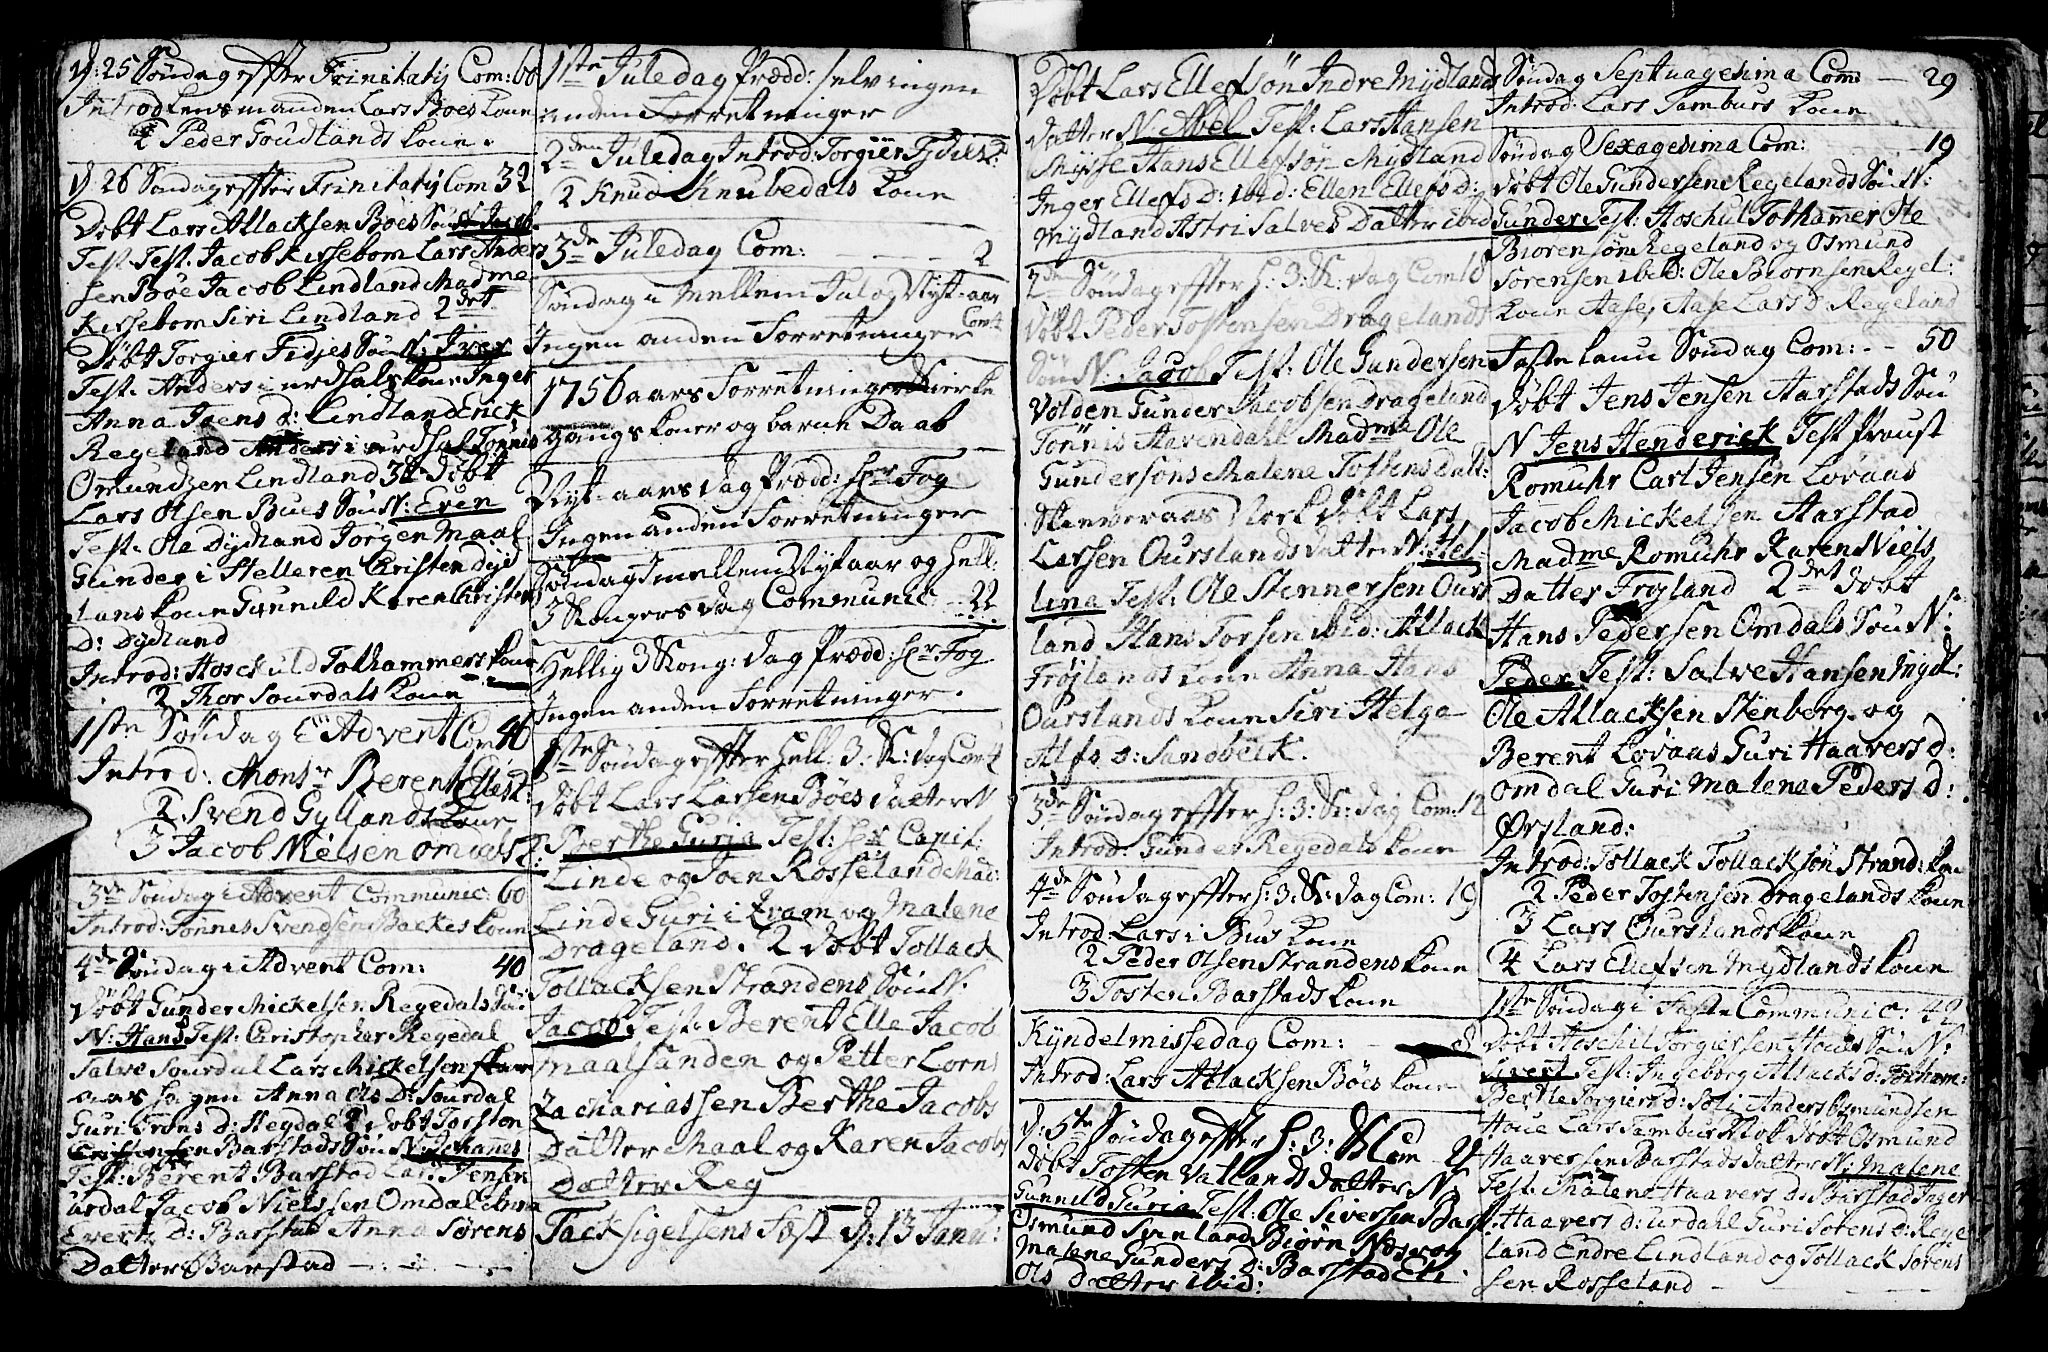 D: 25 Söndag effter Trinitatis Com: 60
Introd Lensmanden Lars Böes Kone
2 Peder Goudlands Kone.
D 26 Söndag effter Trinitatis Com 32
Döbt Lars Atlacksen Böes Sön N: Jacob
Test. Test: Jacob Kirsebom Lars Anders
sen Böe Jacob Lindland Madme
Kirsebom Siri Lindland 2det
Döbt Torgier Fidjes Sön N: Iver
Test: Anders i urdhals kone Inger
Anna Joens d: Lindland Erick
Regeland Anders i urdhal Tönnis
Omundsen Lindland 3de döbt
Lars Olsen Bues Sön N: Even
Test: Ole Dydland Jörgen Maal
Gunder i Helleren Christen Dyd
lans kone Gunnild Karen Christens
D: Dydland
Introd: Hosckuld Tolhammers Kone
2 Thor Sourdals Kone
1ste Söndag i Advent Com 46
Introd: Monsr Berent Elles K:
2 Svend Gyllands Kone
3 Jacob Nielsen Omdals K:
3de Söndag i Advent Communic: 60
Introd: Tönnes Svendsen Backes Kone
4de Söndag i Advent Com: 40
Döbt Gunder Mickelsen Regedals Sön
N: Hans Test: Christopher Regedal
Salve Sourdal Lars Mickelsen Skar
aas hagen Anna Ols D: Sourdal
Guri Trons D: Hegdal 2 döbt Torsten
Christensen Barstads Sön N: Johannes
Test: Berent Barstad Lars Jensen
urdal Jacob Nielssen Omdal Anna
Everts D: Barstad Anna Sörens
Datter Barstad
1ste Juledag Prædd: selv ingen
anden Forretninger
2den Juledag Introd: Torgier Fidies K
2 Knud Knubedals Kone
3de Juledag Com: 2
Söndag i Mellem Jul og Nyt-aar
Ingen anden Forretninger Com
1756 aars Forretninger Kierke
gangs koner og barne Daab
Nyt-aars dag Prædd: Hr Fog
Ingen anden Forretninger
Söndag Imellem Nytaar og Hell:
3 Kongers dag Communic 22
Hellig 3 Kong: dag Prædd: Hr Fog
Ingen anden Forretninger.
1ste Söndag effter Hell: 3: K: dag Com 4
Döbt Lars Larsen Böes datter N
Berthe Guria Test: Hr Capit:
Linde og Joen Rosseland Mad:
Linde Guri i Kram og Malene
Drageland. 2 döbt Tollack
Tollacksen Strandens Sön N:
Jacob Test: Berent Elle Jacob
Maalsanden og Petter Lorns
Zachariassen Berthe Jacobs
Datter Maal og Karen Jacobs
Datter Reg
Tacksigelsens Fæst D: 13 Janu:
Döbt Lars Ellefsön Indre Mydlands
datter N Abel Test: Lars Hansen
Mysse Hans Ellefsön Mydland
Inger Ellefs D: ibid: Ellen Ellefs D:
Mydland Astri Salves Datter ibid
2de Söndag effter H: 3: K: dag Com 18
Döbt Peder Tostensen Dragelands
Sön N: Jacob Test: Ole Gundersen
Volden Gunder Jacobsen Drageland
Tönnis Havendahl Madme Ole
Gundersöns Malene Tostens datt:
Skinneraas Nock döbt Lars
Larsen Ourslands datter N: Hel
lina Test: Ole Stennersen Ours
land Hans Torsen ibid: Atlack
Fröjlands kone Anna Hans
Ourslands kone Siri Helge
Alfs D: Sandbeck.
3de Söndag effter H: 3: K: dag Com: 12
Introd: Gunder Regedals kone
4de Söndag effter H: 3: K: dag Com: 19
Introd: Lars i Bus kone
2 Peder Olsen Strandens kone
3 Tosten Barstads kone
Kyndelmissedag Com: 8
Introd: Lars Atlacksen Böes kone
D: 5te Söndag effter H: 3: K Com
Döbt Tosten Vatlands datter N:
Gunnild Guria Test: Ole Siversen Barst
Osmund Svinland Biörn Næsvog
Malene Gunders D: Barstad Eli
Ols Datter ibid:
Söndag Septuagesima Com: 29
Introd: Lars Tamburs Kone
Söndag Sexagesima Com: 19
Döbt Ole Gundersen Regelands Sön N:
Gunder Test: Hoschul Tolhammer Ole
Biörensön Regeland og Osmund
Sörensen ibid: Ole Biörnsen Regel:
kone Aase, Aase Lars D: Regeland
Fastelaun Söndag Com: 50
Döbt Jens Jensen Aarstads Sön
N Jens Henderick Test Proust
Romuhr Carl Jensen Lovaas
Jacob Mickelsen Aarstad
Madme Romuhr Karen Niels
Datter Fröyland 2det döbt
Hans Pedersen Omdals Sön N:
Peder Test: Salve Hansen Mydl:
Ole Atlacksen Stenberg og
Berent Lovaas Guri Haavers d:
Omdal Guri Malene Peders D:
Örsland:
Introd: Tollack Tollacksön Strand: kone
2 Peder Tostensen Dragelands kone
3 Lars Ourslands kone
4 Lars Ellefsen Mydlands kone
1ste Söndag i Faste Communic: 42
Döbt Hoschil Torgiersen Houes Sön N:
Sivert Test: Ingeborg Atlacks d: Tolham:
Berthe Torgiers d: Söli Anders Osmundsen
Houe Lars Tambur Nok döbt Osmund
Haaversen Barstads datter N: Malene
Test: Malene Haavers D: Barstad Inger
Haavers d: urdahl Guri Sörens d: Rege
land Endre Lindland og Tollack Sörens
sen Rosseland